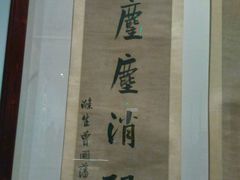 塵塵消
滌生曾國藩